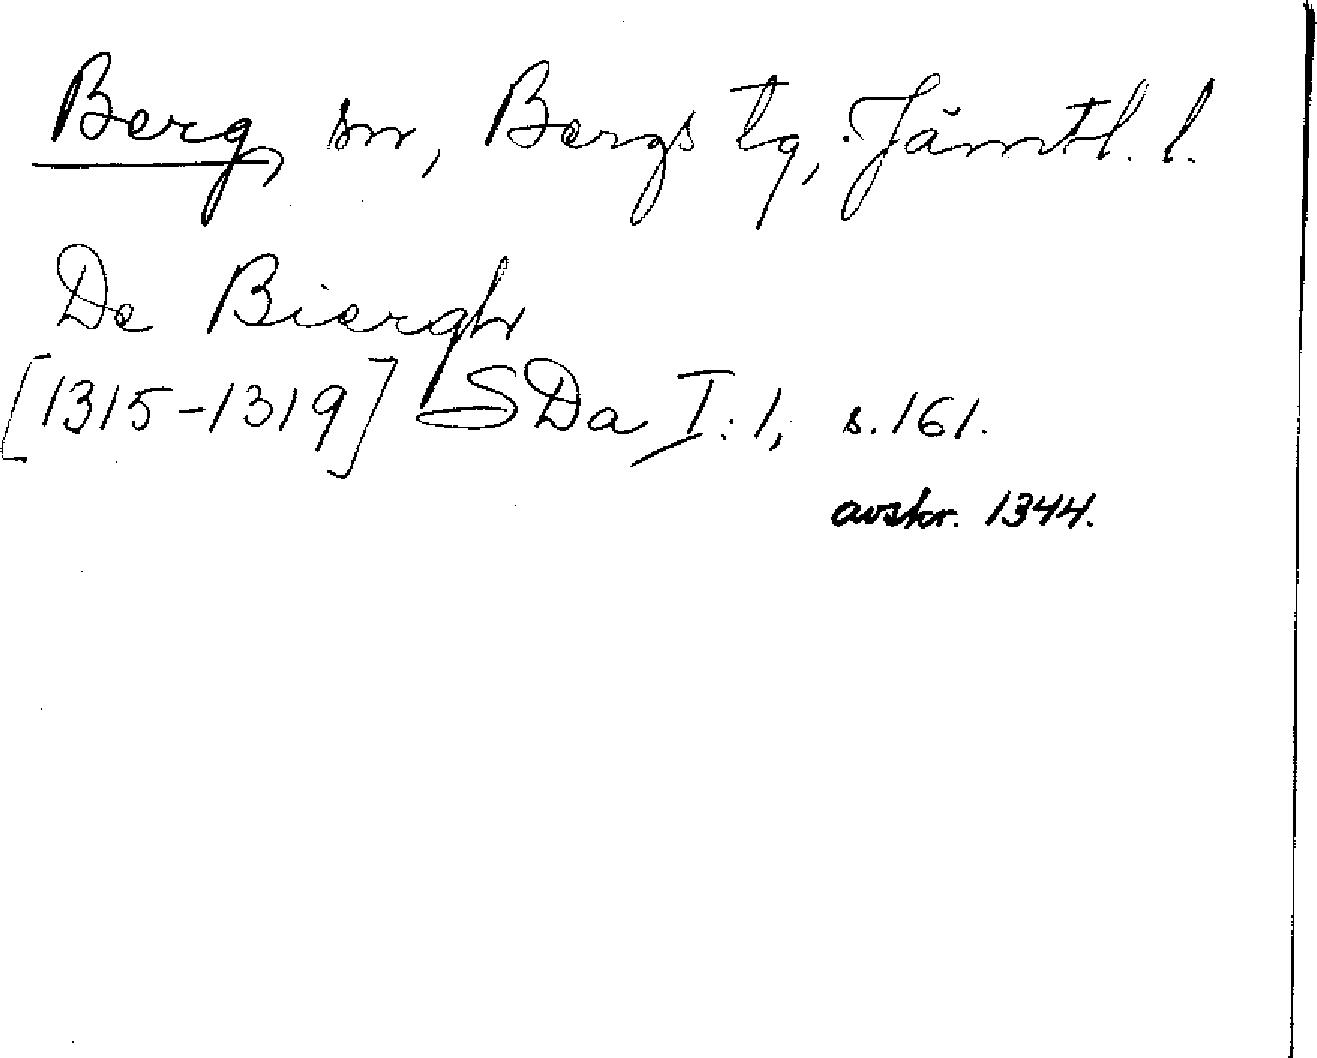 Berg, sn, Bergs tg, Jämtl. l.
De Biergh
[1315-1319] SDa I:1, s. 161.
avskr. 1344.